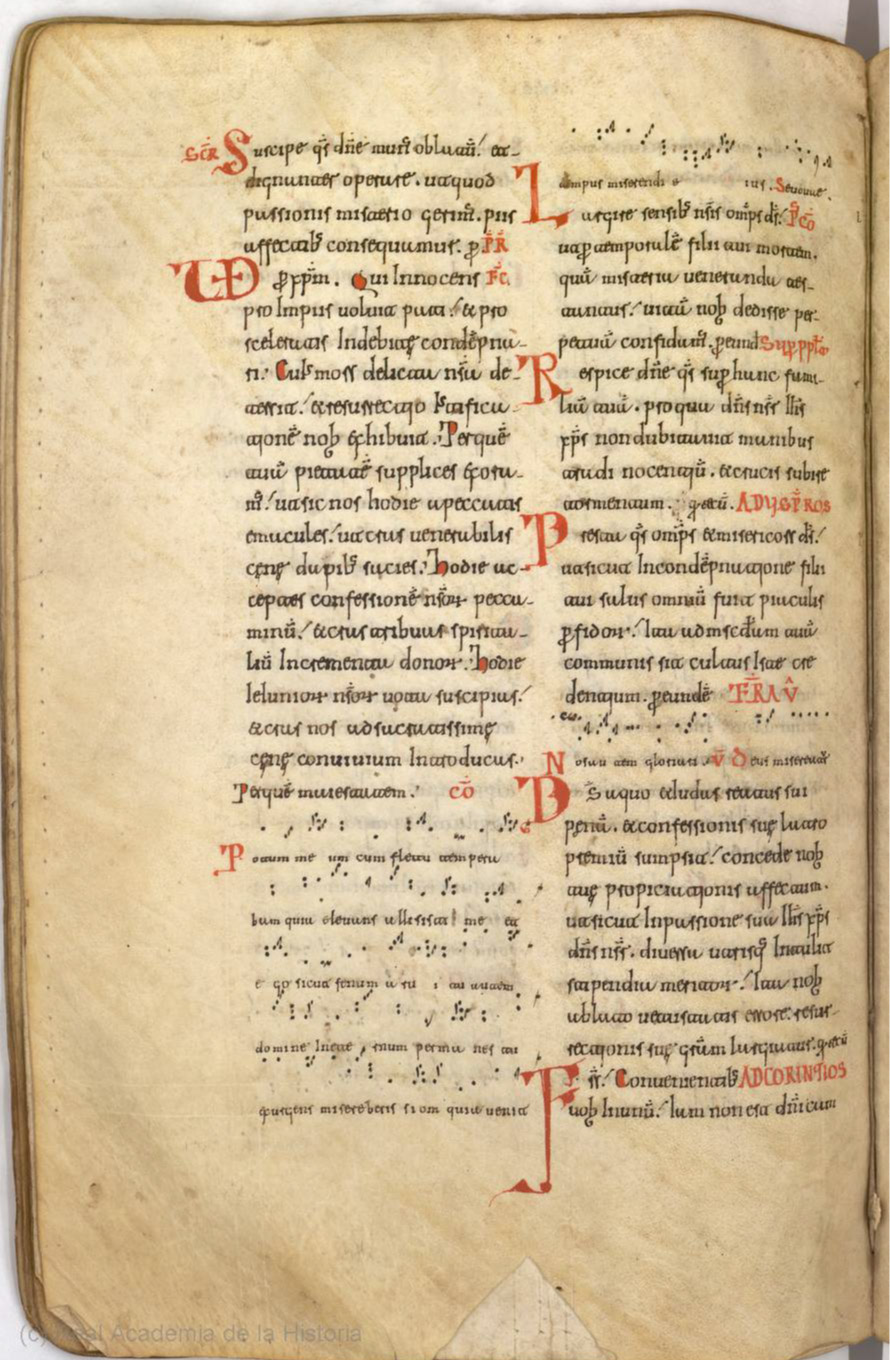 SCR̄ Suscipe qs̄ dn̄e mun̄ oblatū/ et
dignanter operare. ut quod
passionis misterio gerim̄. piis
affectib; consequamur. p̄ PR̄
VD p̄ xp̄m. Qui Innocens FC̄
pro Impiis uoluit pati/ et pro
sceleratis Indebite condēpna
ri. Cuius mors delicta nr̄a de
tersit/ et resurrectio Iustifica
tionē nob exhibuit. Per quē
tuā pietatē supplices exora
m̄/ ut sic nos hodie a peccatis
emacules/ ut cras uenerabilis
cene dapib; sacies. hodie ac
ceptes confessionē nr̄or pecca
minū/ et cras tribuas spirita
liū Incrementa donor. hodie
Ieiunior nr̄or uota suscipias/
et cras nos ad sacratissime
cene conuiuium Introducas.
Per quē maiestatem. CŌ
Potum me um cum fletu tempera
bam quia eleuans allisisti me et
e go sicut fenum a ru i tu autem
domine Ineter num perma nes tu
exurgens misereberis sion quia uenit
tempus miserendi e ius. Seuouae.
Largire sensib; nr̄is omp̄s ds̄/ PCŌ
ut p̄ temporalē filii tui mortem.
quā misteria ueneranda tes
tantur/ uitā nob dedisse per
petuā confidam̄. p̄ eund Sup̄ pplō
Respice dn̄e qs̄ sup̄ hanc fami
liā tuā. pro qua dn̄s nr̄ Ihs̄
xp̄s non dubitauit manibus
tradi nocentiū. et crucis subire
tormentum. q̄ tecū. AD UESP̄ROS
Presta qs̄ omp̄s et misericors ds̄/
ut sicut In condēpnatione filii
tui salus omniū fuit piaculis
p̄fidor/ Ita ad misc̄dam tuā
communis sit cultus Iste cre
dentium. p̄ eundē FR̄A V̂
Nos au tem gloriari V̄ Deus misereatur
Ds̄ a quo et Iudas reatus sui
penā. et confessionis sue latro
premiū sumpsit/ concede nob
tue propiciationis affectum.
ut sicut In passione sua Ihs̄ xp̄s
dn̄s nr̄. diuersa utrisq; Intulit
stipendia meritor/ Ita nob
ablato uetustatis errore. resur
rectionis sue grām largiatur. q̄ tecū
Fr̄/ Conuenientib; AD CORINTIOS
uob In unū/ Iam non est dn̄icam
(c) Real Academia de la Historia